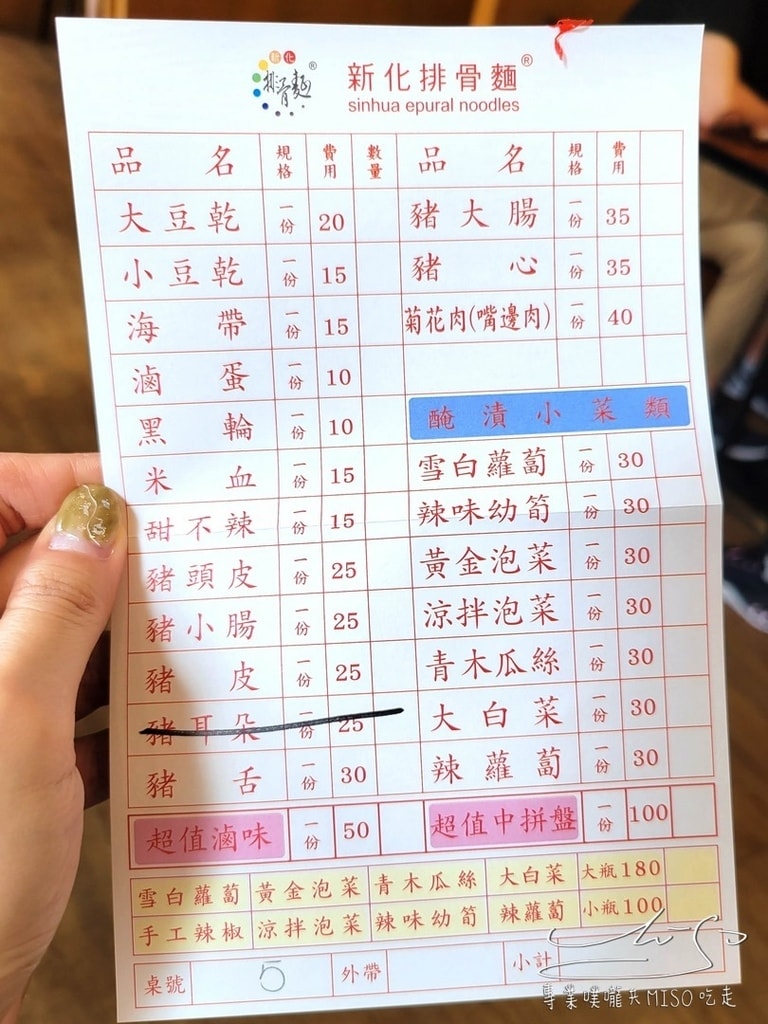 新化排骨麵®
新化排骨麵®
sinhua epural noodles
品名 規格 費用 數量 品名 規格 費用
大豆乾 一份 20 豬大腸 一份 35
小豆乾 一份 15 豬心 一份 35
海帶 一份 15 菊花肉(嘴邊肉) 一份 40
滷蛋 一份 10
黑輪 一份 10 醃漬小菜類
米血 一份 15 雪白蘿蔔 一份 30
甜不辣 一份 15 辣味幼筍 一份 30
豬頭皮 一份 25 黃金泡菜 一份 30
豬小腸 一份 25 涼拌泡菜 一份 30
豬皮 一份 25 青木瓜絲 一份 30
豬耳朵 一份 25 大白菜 一份 30
豬舌 一份 30 辣蘿蔔 一份 30
超值滷味 一份 50 超值中拼盤 一份 100
雪白蘿蔔 黃金泡菜 青木瓜絲 大白菜 大瓶180
手工辣椒 涼拌泡菜 辣味幼筍 辣蘿蔔 小瓶100
桌號 5 外帶 小計
專業噗嚨共MISO吃走